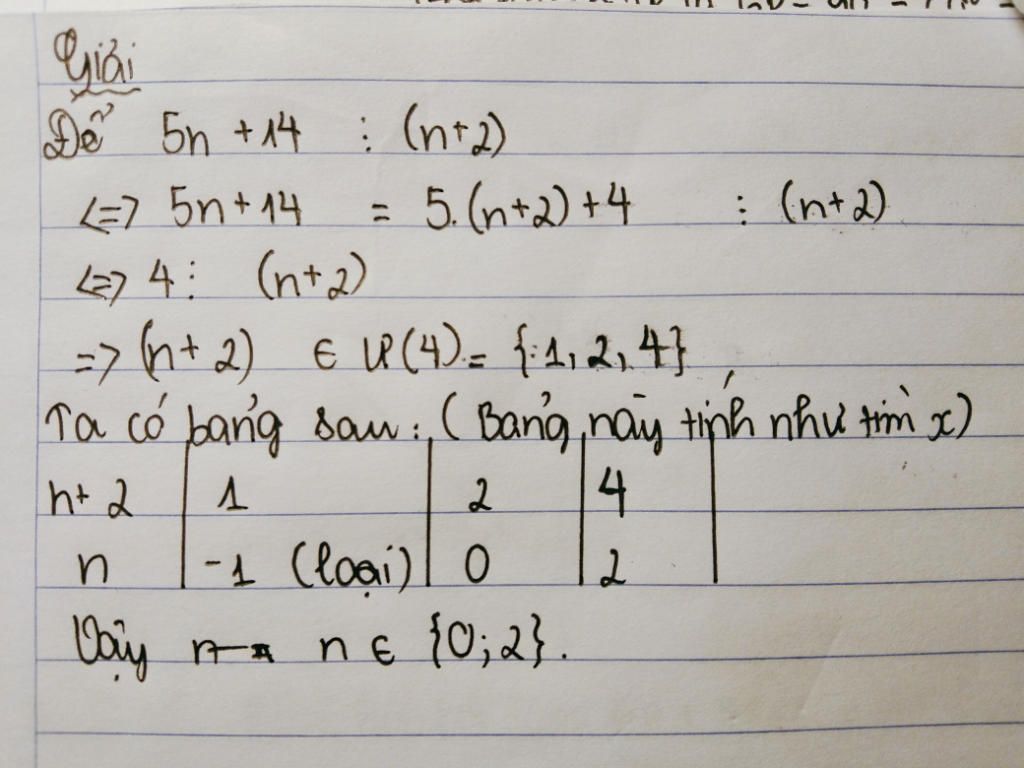 Giải
Để 5n + 14 ⋮ (n+2)
<=> 5n+14 = 5.(n+2)+4 ⋮ (n+2)
<=> 4 ⋮ (n+2)
=> (n+2) ∈ Ư(4) = {1, 2, 4}
Ta có bảng sau: (Bảng này tính như tìm x)
n+2 | 1 | 2 | 4 |
n | -1 (loại) | 0 | 2 |
Vậy n ∈ {0;2}.